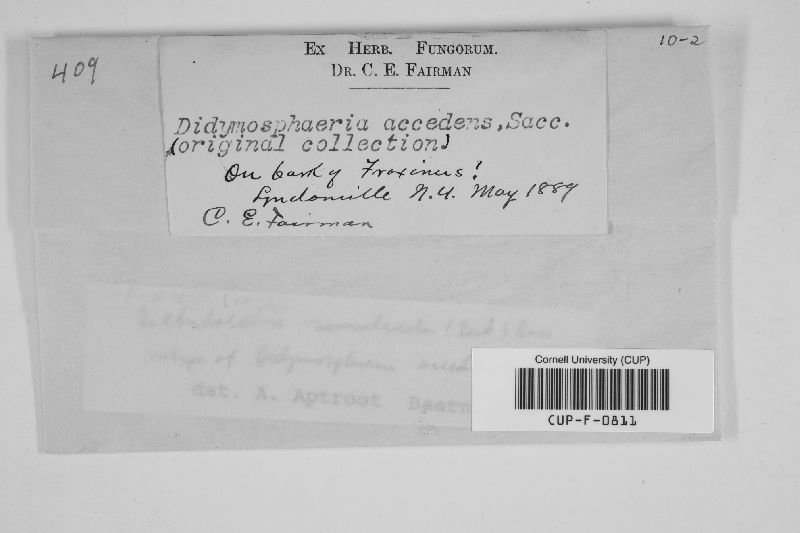 409
10-2
Ex Herb. Fungorum.
Dr. C. E. Fairman
Didymosphaeria accedens, Sacc.
(original collection)
On bark of Fraxinus!
Lyndonville N.Y. May 1889
C. E. Fairman
type of Didymosphaeria
det. A. Aptroot Baarn
Cornell University (CUP)
CUP-F-0811